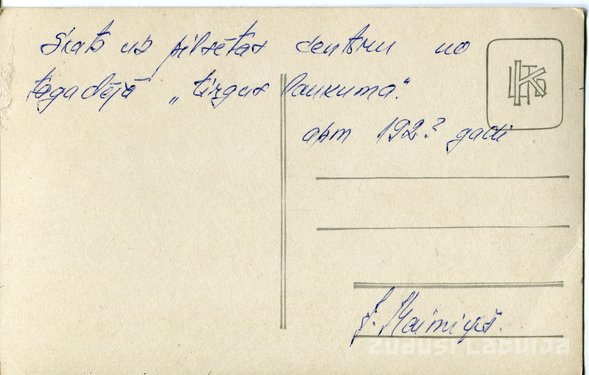 Skats uz pilsētas centru no
tagadējā „tirgus laukuma".
apm 192? gadi
J.